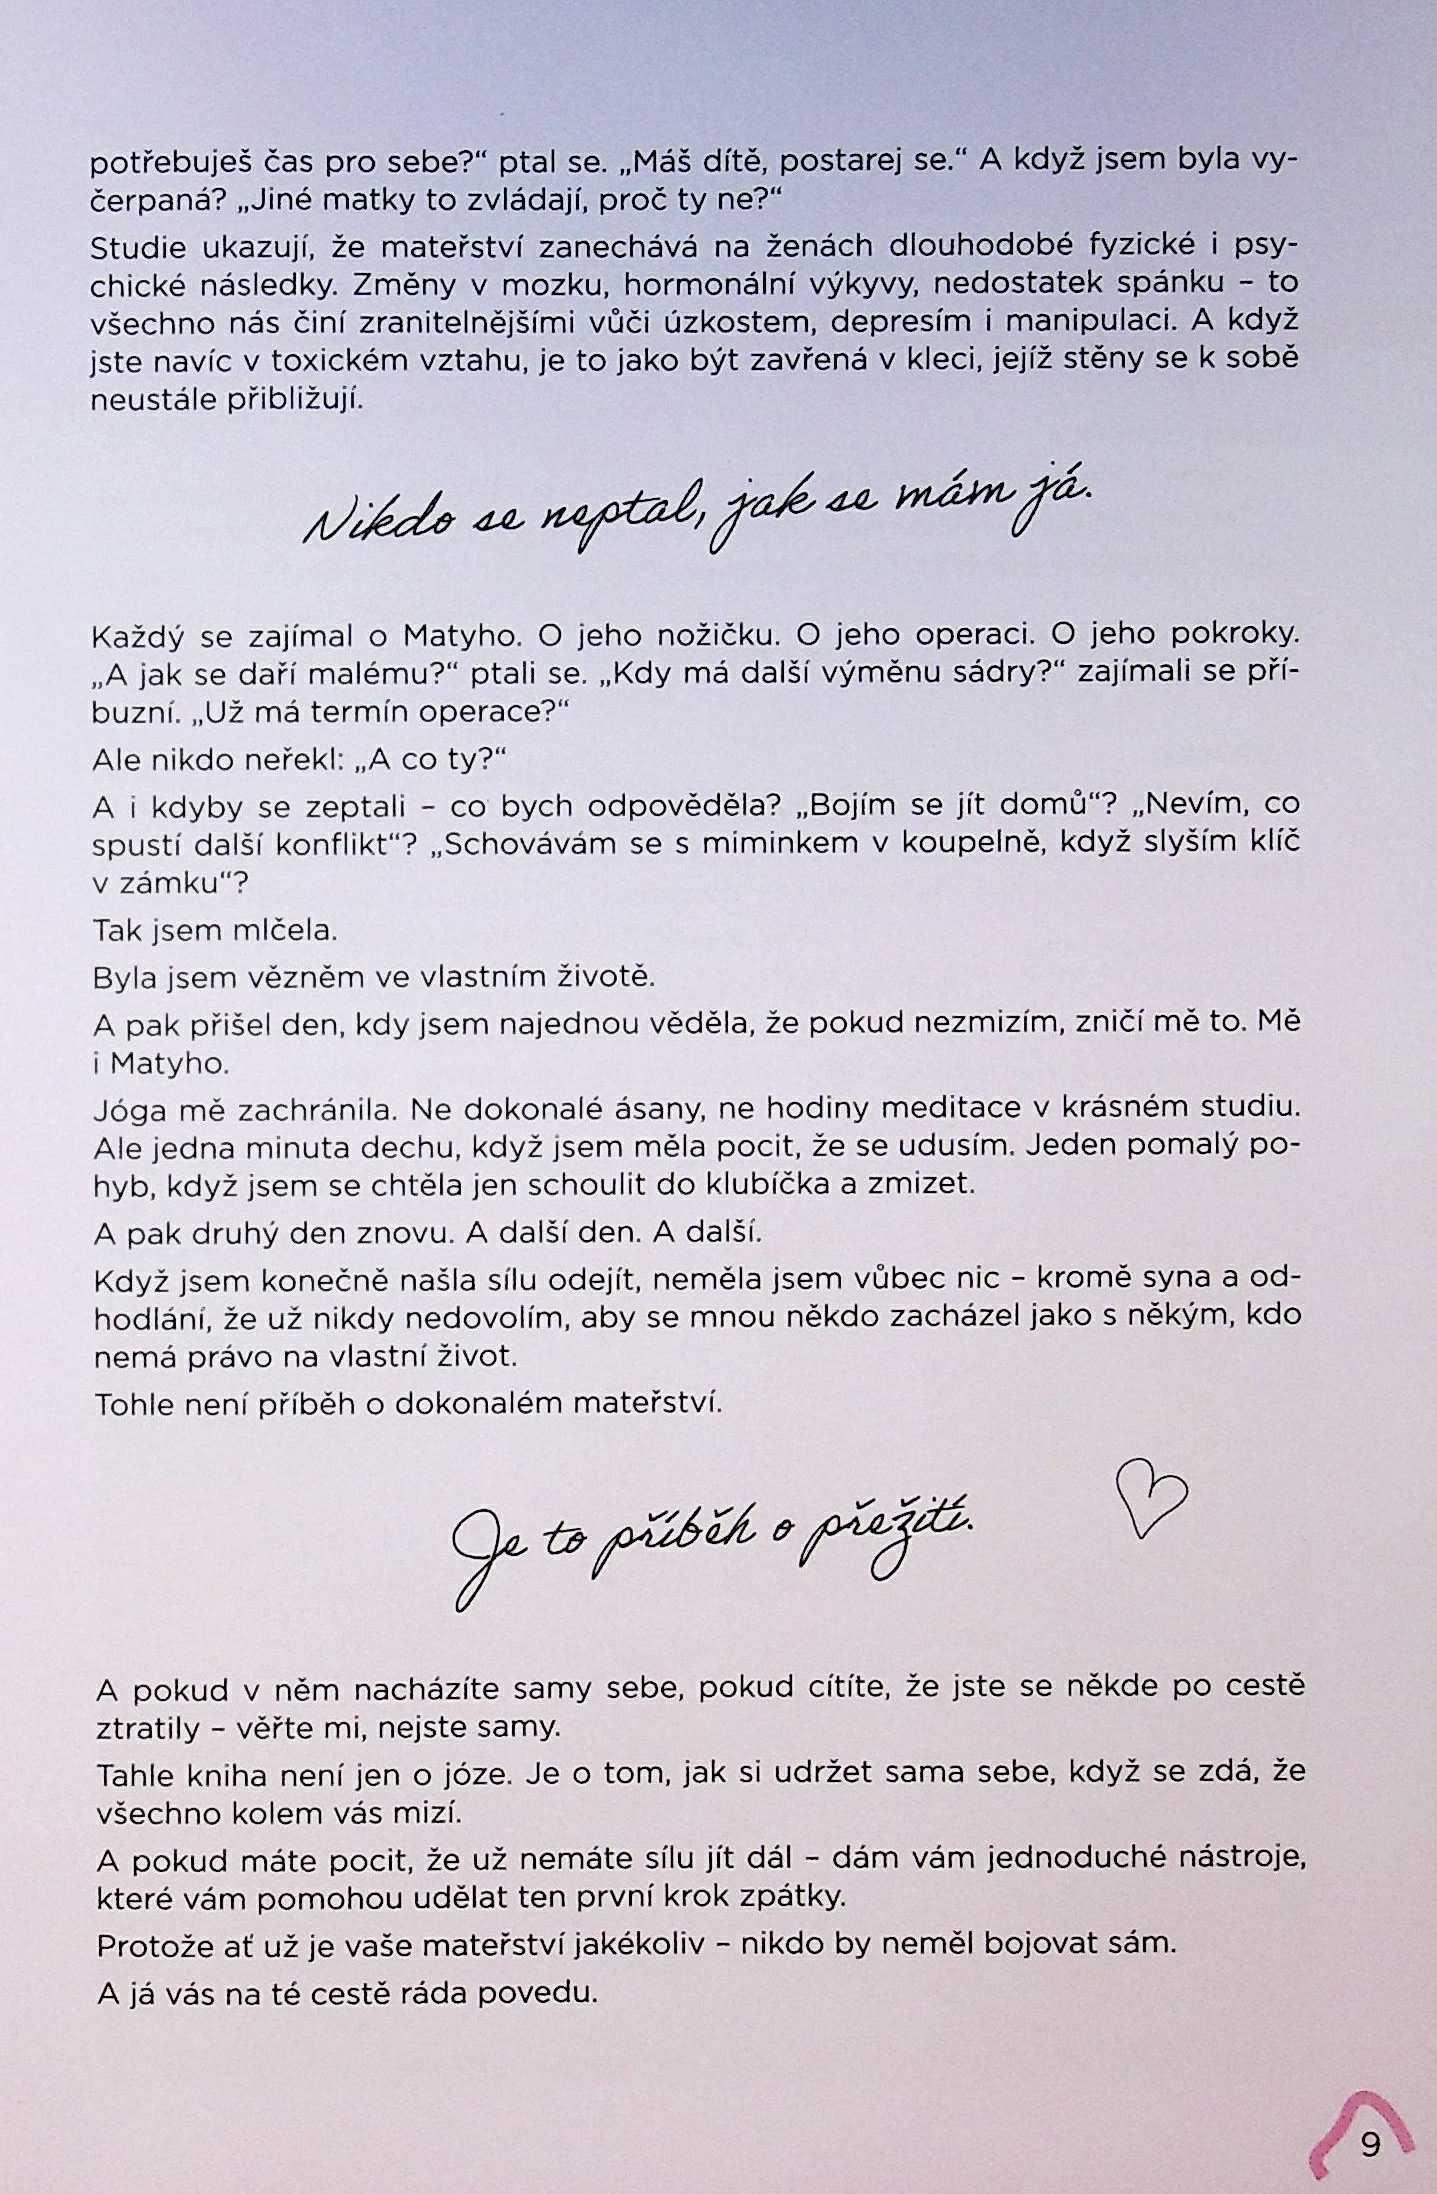 potřebuješ čas pro sebe?“ ptal se. „Máš dítě, postarej se.“ A když jsem byla vy-
čerpaná? „Jiné matky to zvládají, proč ty ne?“
Studie ukazují, že mateřství zanechává na ženách dlouhodobé fyzické i psy-
chické následky. Změny v mozku, hormonální výkyvy, nedostatek spánku – to
všechno nás činí zranitelnějšími vůči úzkostem, depresím i manipulaci. A když
jste navíc v toxickém vztahu, je to jako být zavřená v kleci, jejíž stěny se k sobě
neustále přibližují.
Nikdo se neptal, jak se mám já.
Každý se zajímal o Matyho. O jeho nožičku. O jeho operaci. O jeho pokroky.
„A jak se daří malému?“ ptali se. „Kdy má další výměnu sádry?“ zajímali se pří-
buzní. „Už má termín operace?“
Ale nikdo neřekl: „A co ty?“
A i kdyby se zeptali – co bych odpověděla? „Bojím se jít domů“? „Nevím, co
spustí další konflikt“? „Schovávám se s miminkem v koupelně, když slyším klíč
v zámku“?
Tak jsem mlčela.
Byla jsem vězněm ve vlastním životě.
A pak přišel den, kdy jsem najednou věděla, že pokud nezmizím, zničí mě to. Mě
i Matyho.
Jóga mě zachránila. Ne dokonalé ásany, ne hodiny meditace v krásném studiu.
Ale jedna minuta dechu, když jsem měla pocit, že se udusím. Jeden pomalý po-
hyb, když jsem se chtěla jen schoulit do klubíčka a zmizet.
A pak druhý den znovu. A další den. A další.
Když jsem konečně našla sílu odejít, neměla jsem vůbec nic – kromě syna a od-
hodlání, že už nikdy nedovolím, aby se mnou někdo zacházel jako s někým, kdo
nemá právo na vlastní život.
Tohle není příběh o dokonalém mateřství.
Je to příběh o přežití.
A pokud v něm nacházíte samy sebe, pokud cítíte, že jste se někde po cestě
ztratily – věřte mi, nejste samy.
Tahle kniha není jen o józe. Je o tom, jak si udržet sama sebe, když se zdá, že
všechno kolem vás mizí.
A pokud máte pocit, že už nemáte sílu jít dál – dám vám jednoduché nástroje,
které vám pomohou udělat ten první krok zpátky.
Protože ať už je vaše mateřství jakékoliv – nikdo by neměl bojovat sám.
A já vás na té cestě ráda povedu.
9